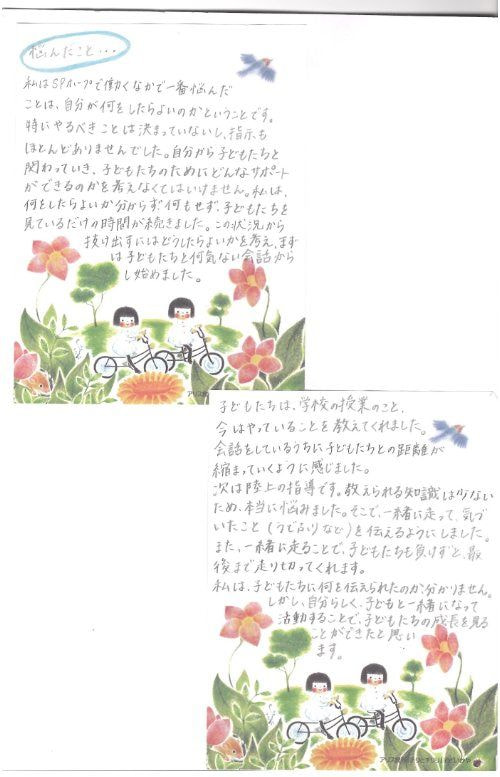 悩んだこと...
私はSPホープで働くなかで一番悩んだ
ことは、自分が何をしたらよいのかということです。
特にやるべきことは決まっていないし、指示も
ほとんどありませんでした。自分から子どもたちと
関わっていき、子どもたちのためにどんなサポート
ができるのかを考えなくてはいけません。私は、
何をしたらよいか分からず何もせず、子どもたちを
見ているだけの時間が続きました。この状況から
抜け出すにはどうしたらよいかを考え、まず
は子どもたちと何気ない会話から
し始めました。
子どもたちは、学校の授業のこと、
今はやっていることを教えてくれました。
会話をしているうちに子どもたちとの距離が
縮まっていくように感じました。
次は陸上の指導です。教えられる知識は少ない
ため、本当に悩みました。そこで、一緒に走って、気づ
いたこと(うでふりなど)を伝えるようにしました。
また、一緒に走ることで、子どもたちも負けずと、最
後まで走り切ってくれます。
私は、子どもたちに何を伝えられたのか分かりません。
しかし、自分らしく、子どもと一緒になって
活動することで、子どもたちの成長を見る
ことができたと思い
ます。